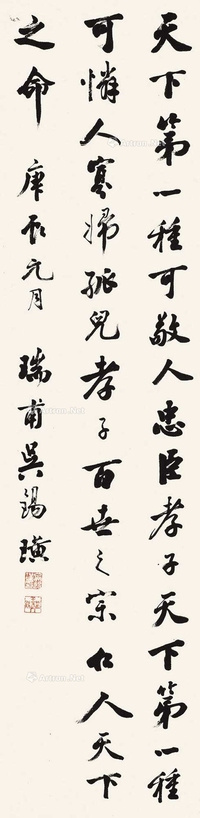 天下第一種可敬人忠臣孝子天下第一種
可憐人寡婦孤兒孝子百世之宗仁人天下
之命 庚辰元月 瑞甫吳錫璜